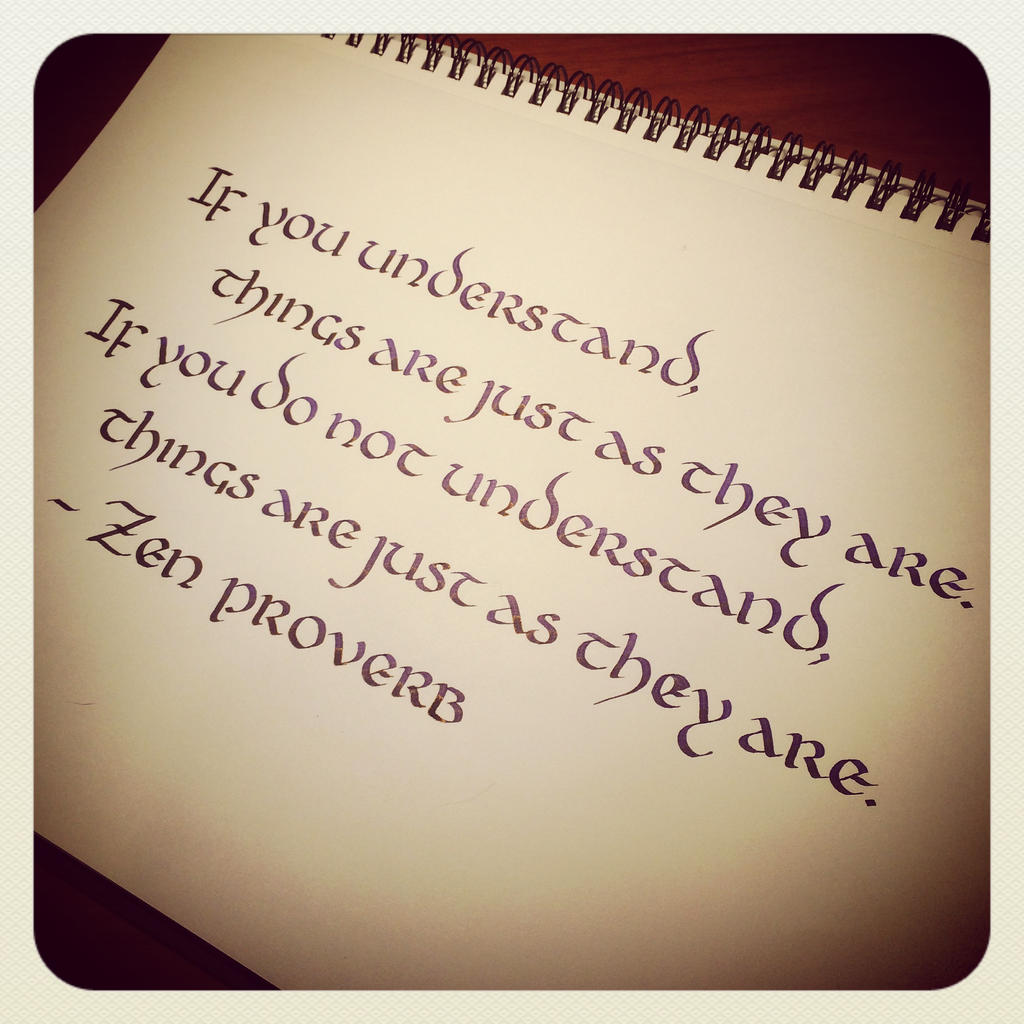 If you understand,
things are just as they are.
If you do not understand,
things are just as they are.
- Zen proverb